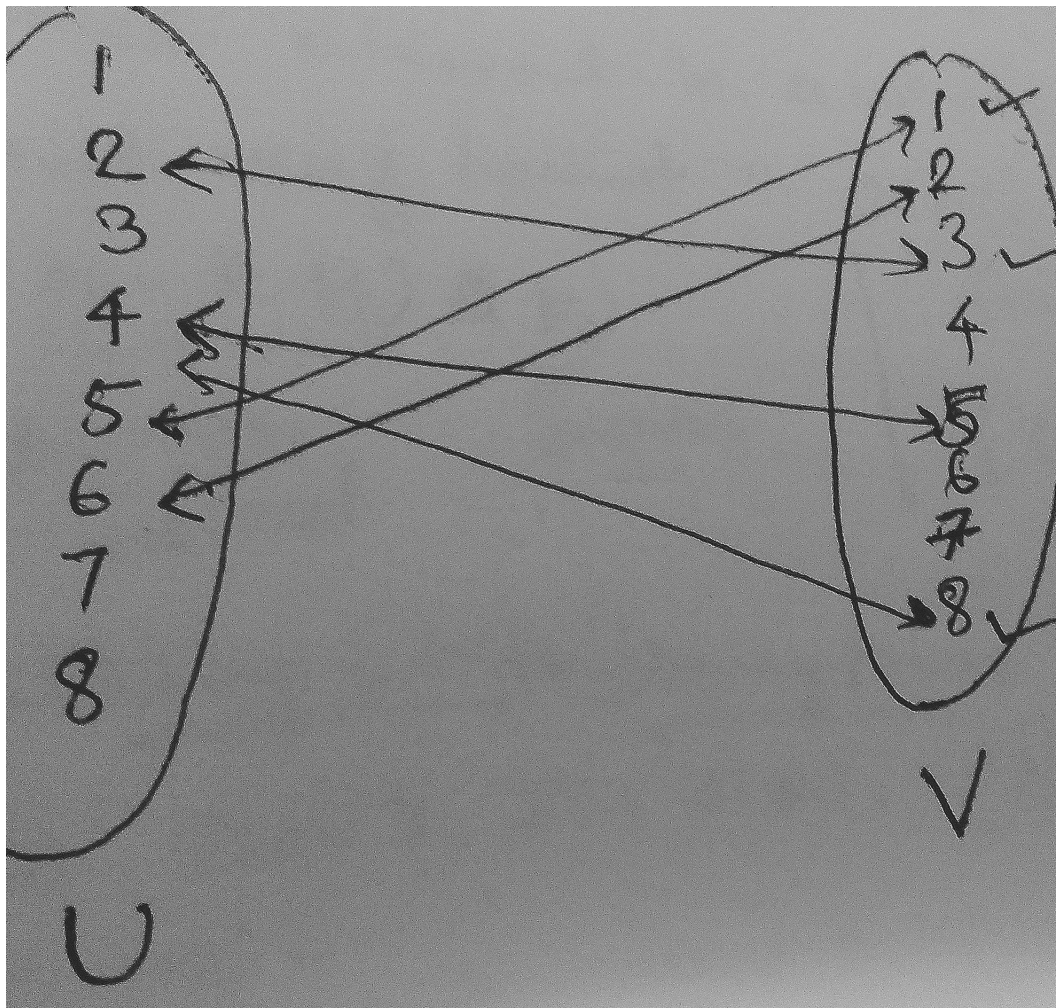 1
2
3
4
5
6
7
8
U
1
2
3
4
5
6
7
8
V